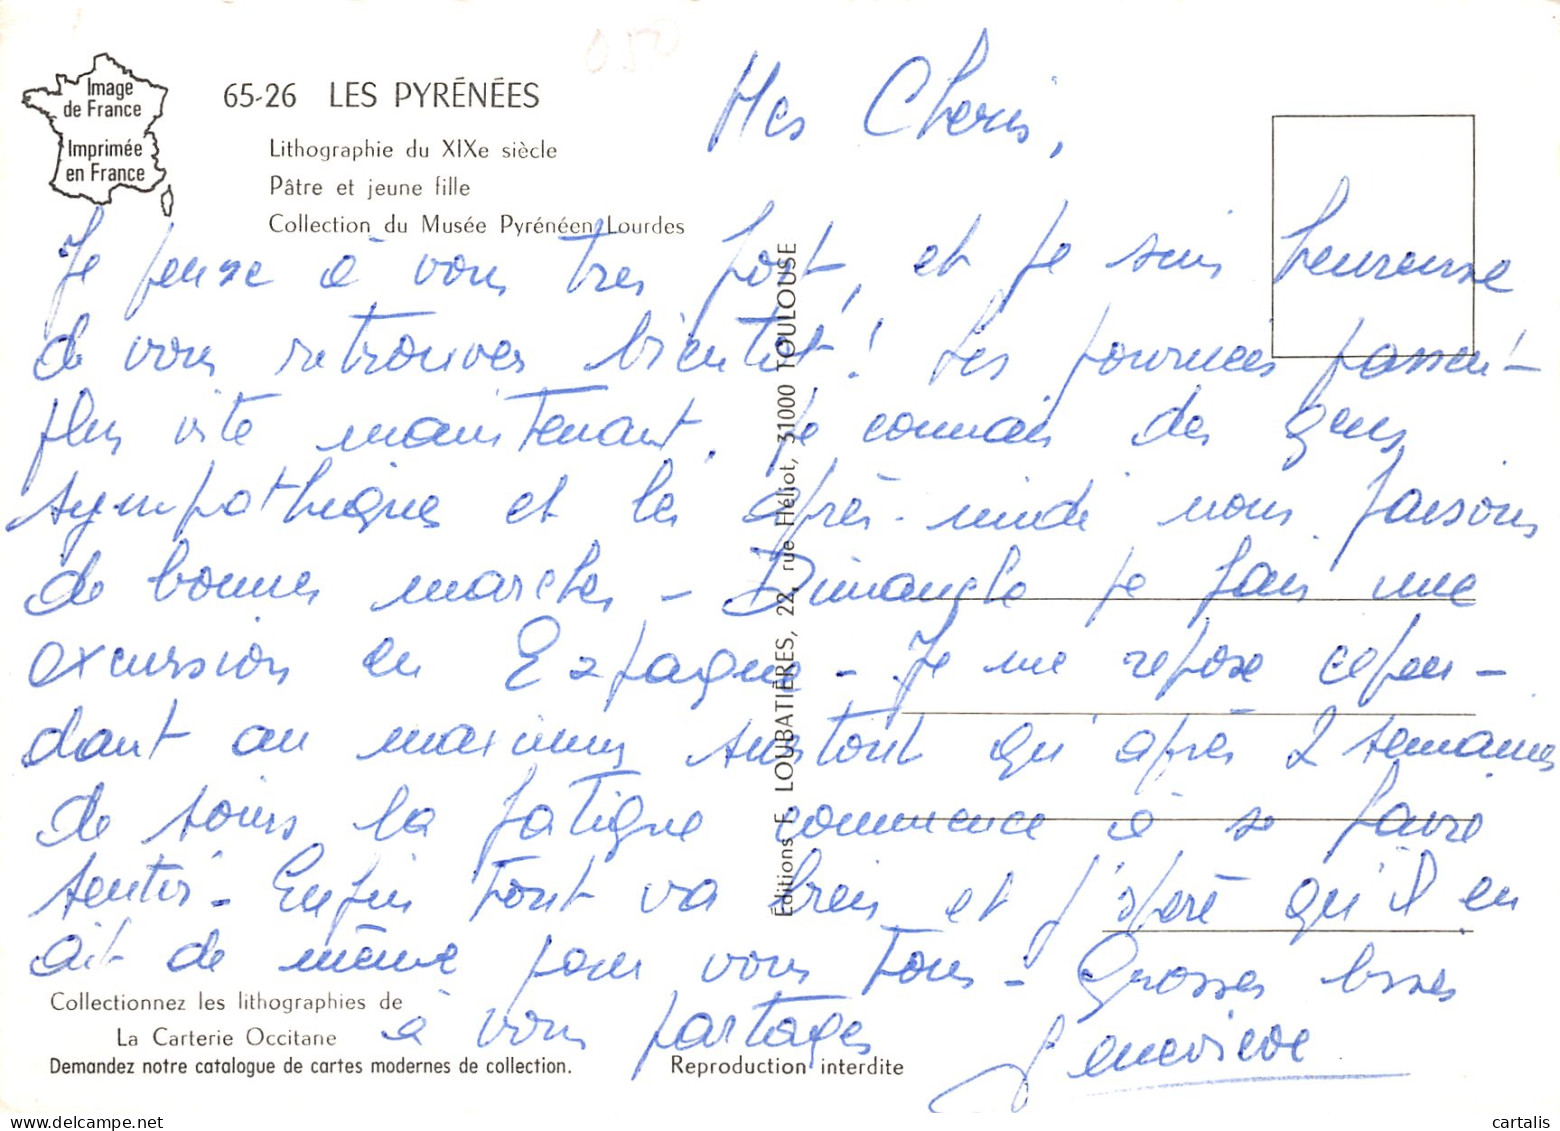 Image
de France
Imprimée
en France
65-26 LES PYRÉNÉES
Lithographie du XIXe siècle
Pâtre et jeune fille
Collection du Musée Pyrénéen Lourdes
Mes Cheris,
Je pense à vous tres fort, et je suis heureuse
de vous retrouver bientôt ! Les journees passent
plus vite maintenant. Je connais des gens
sympathiques et les après-midi nous faisons
de bonnes marches - Dimanche je fais une
excursion en Espagne - Je me repose cepen-
dant au maximum surtout qu'après 2 semaines
de soins la fatigue commence à se faire
sentir - Enfin tout va bien et j'espère qu'il en
ait de même pour vous tous - Grosses bises
à vous partager
Genevieve
Éditions F. LOUBATIÈRES, 22, rue Héliot, 31000 TOULOUSE
Collectionnez les lithographies de
La Carterie Occitane
Demandez notre catalogue de cartes modernes de collection.
Reproduction interdite
cartalis